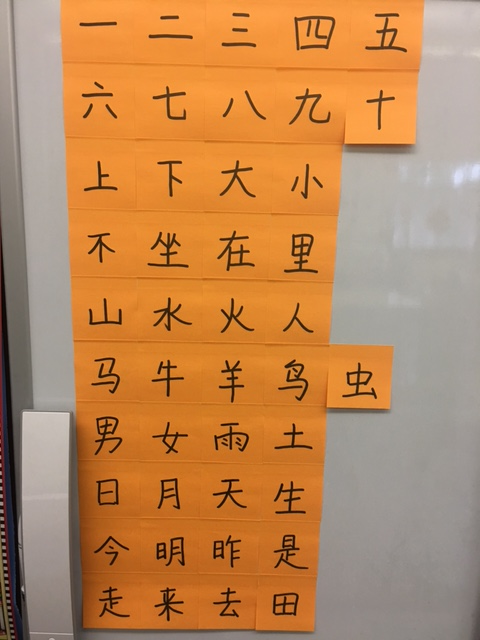 一 二 三 四 五
六 七 八 九 十
上 下 大 小
不 坐 在 里
山 水 火 人
马 牛 羊 鸟 虫
男 女 雨 土
日 月 天 生
今 明 昨 是
走 来 去 田